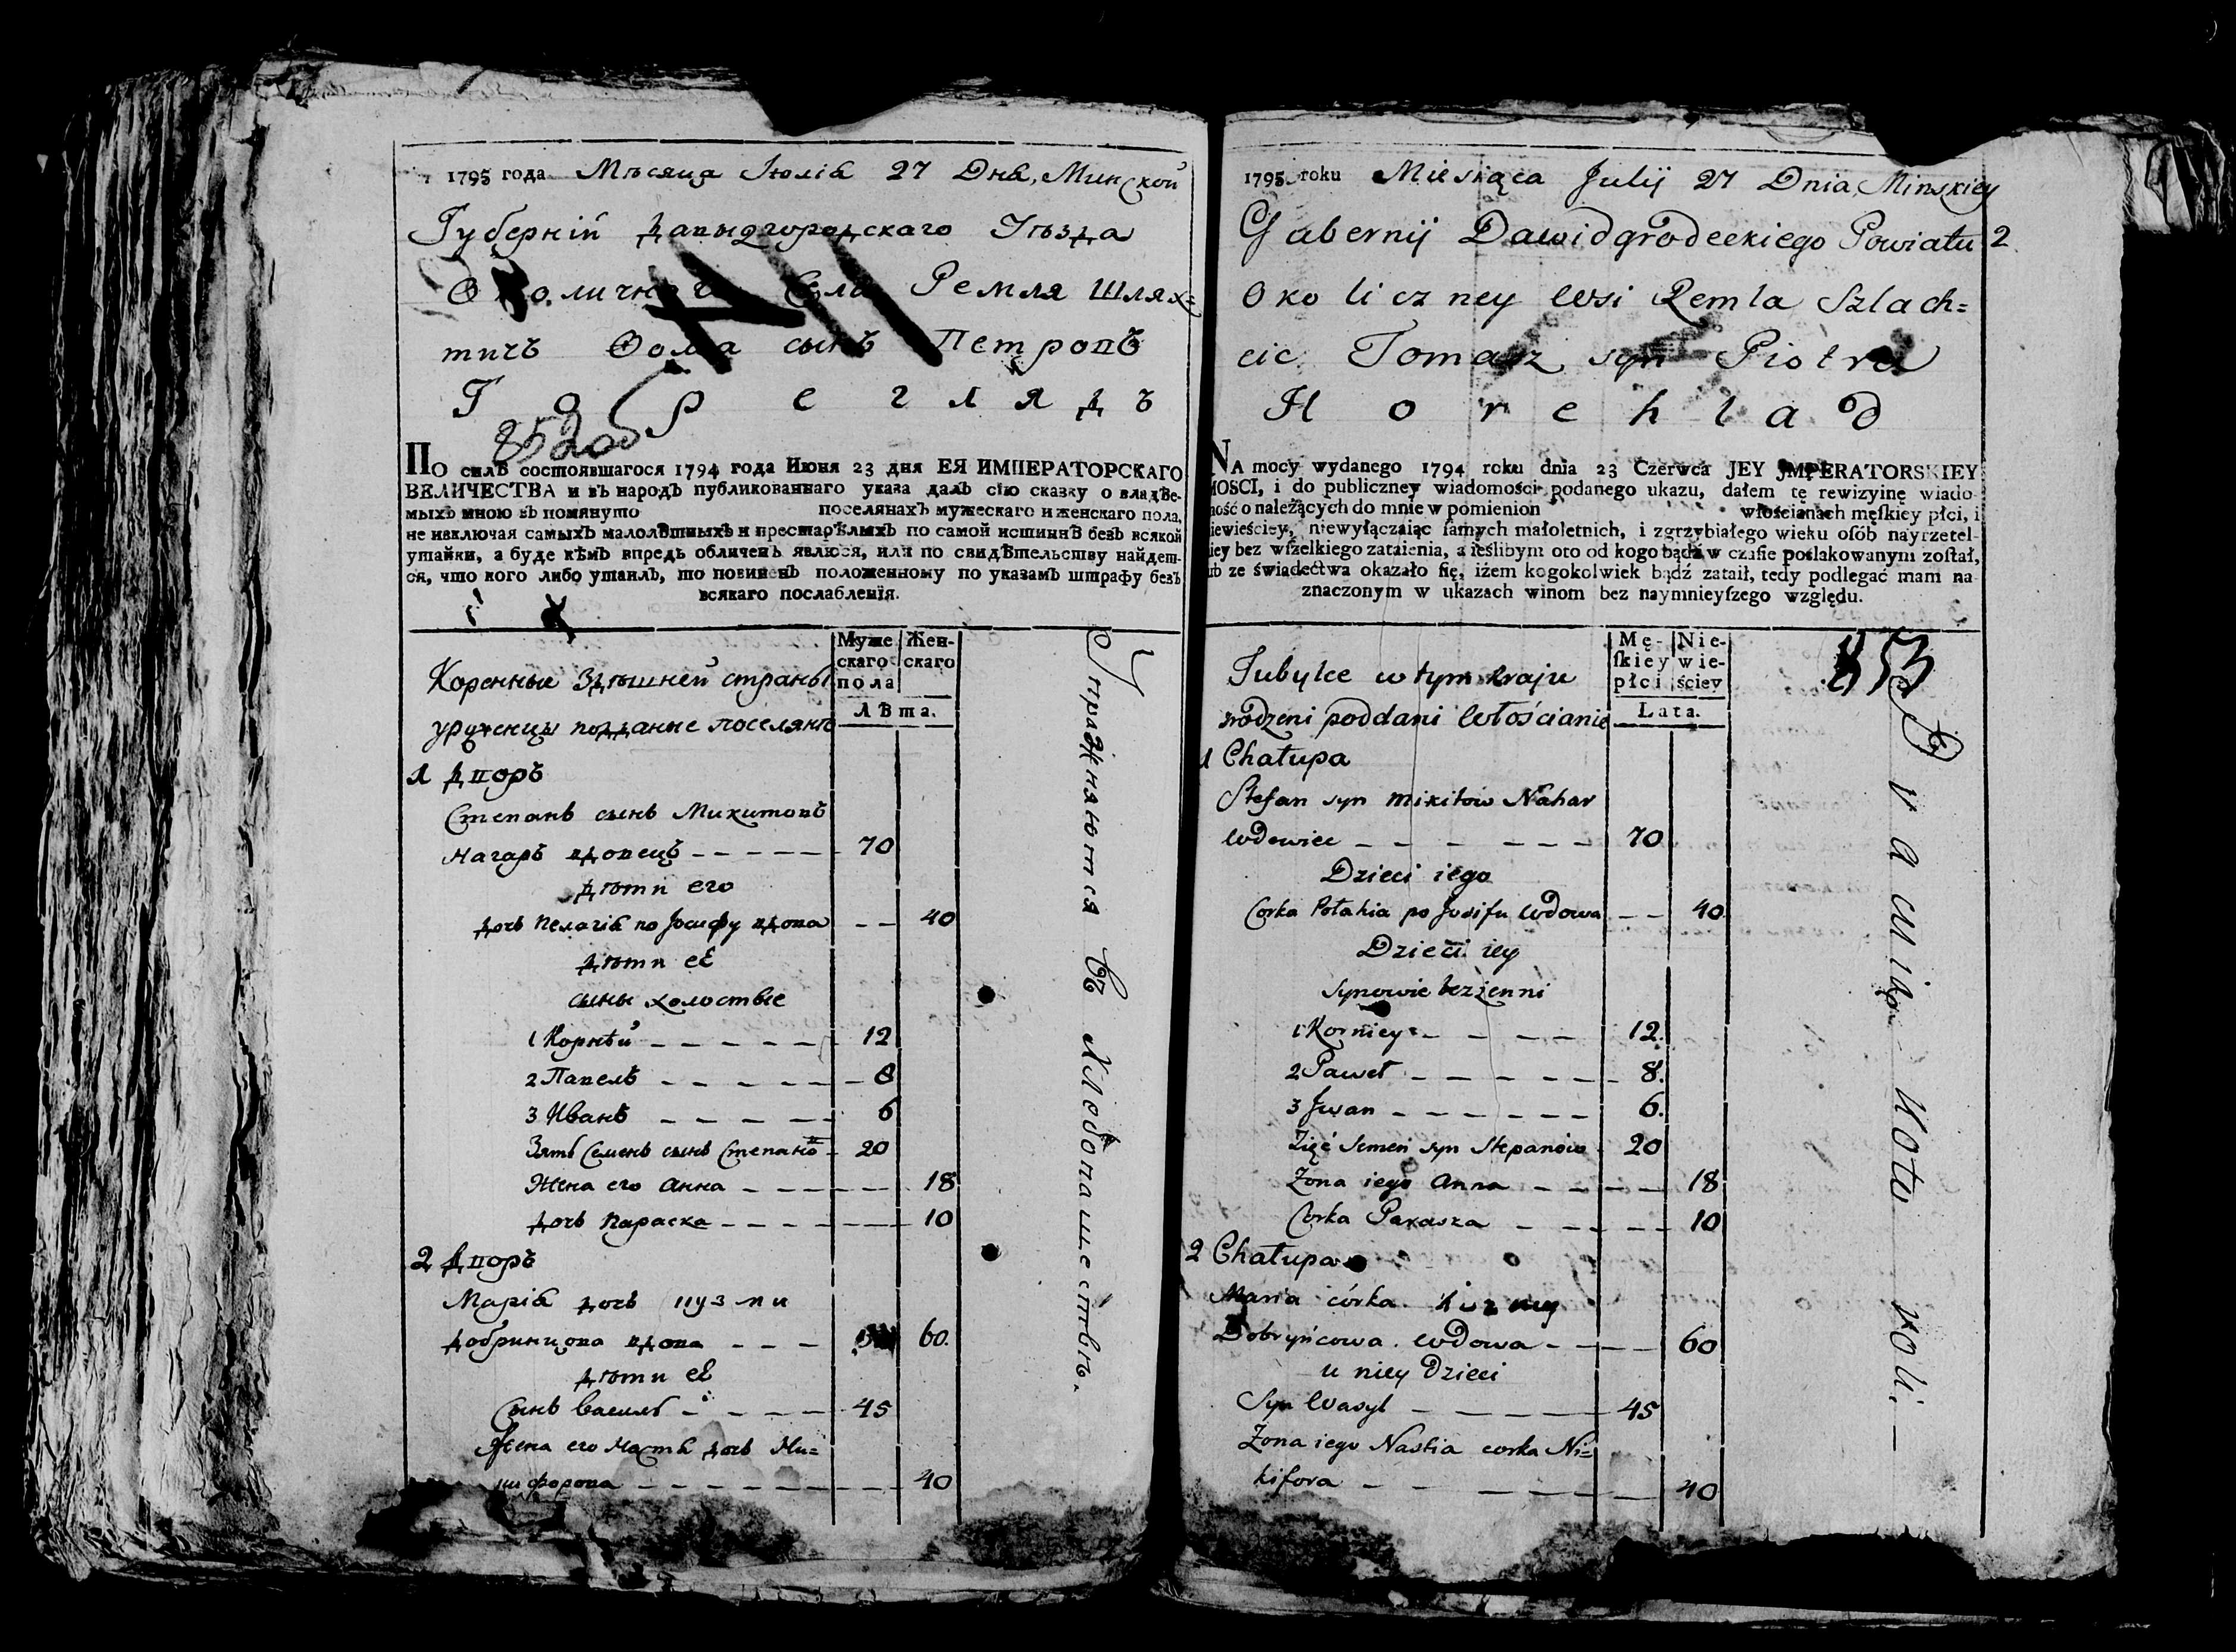 1795 года Мѣсяца Іюлія 27 Дня, Минской
Губерній Давыдгородскаго Уѣзда
Околичнаго Села Ремля Шлях=
тичъ Ѳома сынъ Петровъ
Г о р е г л я д ъ
852 об
ПО силѣ состоявшагося 1794 года Июня 23 дня ЕЯ ИМПЕРАТОРСКАГО
ВЕЛИЧЕСТВА и въ народъ публикованнаго указа далъ сію сказку о владѣе-
мыхъ мною въ помянуто поселянахъ мужескаго и женскаго пола,
не изключая самыхъ малолѣтныхъ и престарѣлыхъ по самой истиннѣ безъ всякой
утайки, а буде кѣмъ впредь обличенъ явлюся, или по свидѣтельству найдет-
ся, что кого либо утаилъ, то повиненъ положенному по указамъ штрафу безъ
всякаго послабленїя.
Коренные Здѣшней страны
уруженцыподданые поселянѣ
Муже
скаго
пола
Жен-
скаго
Лѣта.
1 Дворъ
Степанъ сынъ Микитовъ
Нагаръ вдовецъ - - - - - - 70
дѣти его
дочь Пелагія по Іосифу вдова - - 40
дѣти еЁ
сыны холостые
1 Корнѣй - - - - - - 12
2 Павелъ - - - - - - 8
3 Иванъ - - - - - 6
Зять Семенъ сынъ Степановъ - 20
Жена его Анна - - - - - - 18
дочь Параска - - - - - - - 10
2 Дворъ
Марія дочь Кузми
Добринцова вдова - - - 60.
дѣти еЁ
Сынъ Василь - - - - - 45
Жена его Настя дочь Ни=
кифорова - - - - - - - - 40
Упражняются въ Хлѣбопашествѣ.
1795 roku Miesiąca Julij 27 Dnia, Minskiey
Gubernij Dawidgrodeckiego Powiatu 2
Okoliczney Wsi Remla Szlach=
cic Tomasz syn Piotra
H o r e h l a d
NA mocy wydanego 1794 roku dnia 23 Czerwca JEY JMPERATORSKIEY
MOSCI, i do publiczney wiadomości podanego ukazu, dałem tę rewizyinę wiado-
mość o należących do mnie w pomienion włościanach męſkiey płci, i
niewieściey, niewyłączaiąc ſamych małoletnich, i zgrzybiałego wieku oſób nayrzetel-
niey bez wſzelkiego zataienia, a ieślibym oto od kogo bądź w czaſie poſlakowanym zoſtał,
lub ze świadectwa okazało ſię, iżem kogokolwiek bądź zataił, tedy podlegać mam na-
znaczonym w ukazach winom bez naymnieyſzego względu.
Tubylce w tym kraju
rodzeni poddani Włościanie
Mę-
ſkiey
płci
Nie-
wie-
ściey
Lata.
853
1 Chałupa
Stefan syn Mikitow Nahar
Wdowiec - - - - - - - 70
Dzieci iego
Corka Połahia po Jusifu Wdowa - - 40
Dzieci iey
Synowie bezżenni
1 Korniey - - - - 12.
2 Paweł - - - - - - 8.
3 Jwan - - - - - - 6.
Zięć Semen syn Stepanów 20
Zona iego Anna - - - - 18
Corka Paraska - - - - 10
2 Chałupa
Maria córka Kuzmy
Dobryńcowa Wdowa - - - - 60
u niey Dzieci
Syn Wasyl - - - - - 45
Zona iego Nastia corka Ni=
kifora - - - - - - 40
Pracuią Koło roli.